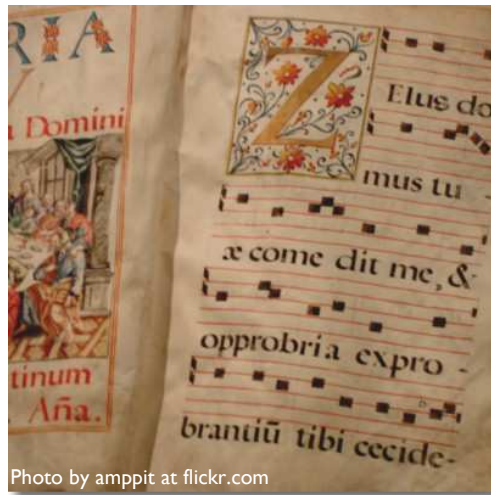 RIA
Domini
tinum
Aña.
ZElus do
mus tu -
æ come dit me, &
opprobria expro -
brantiũ tibi cecide-
Photo by amppit at flickr.com